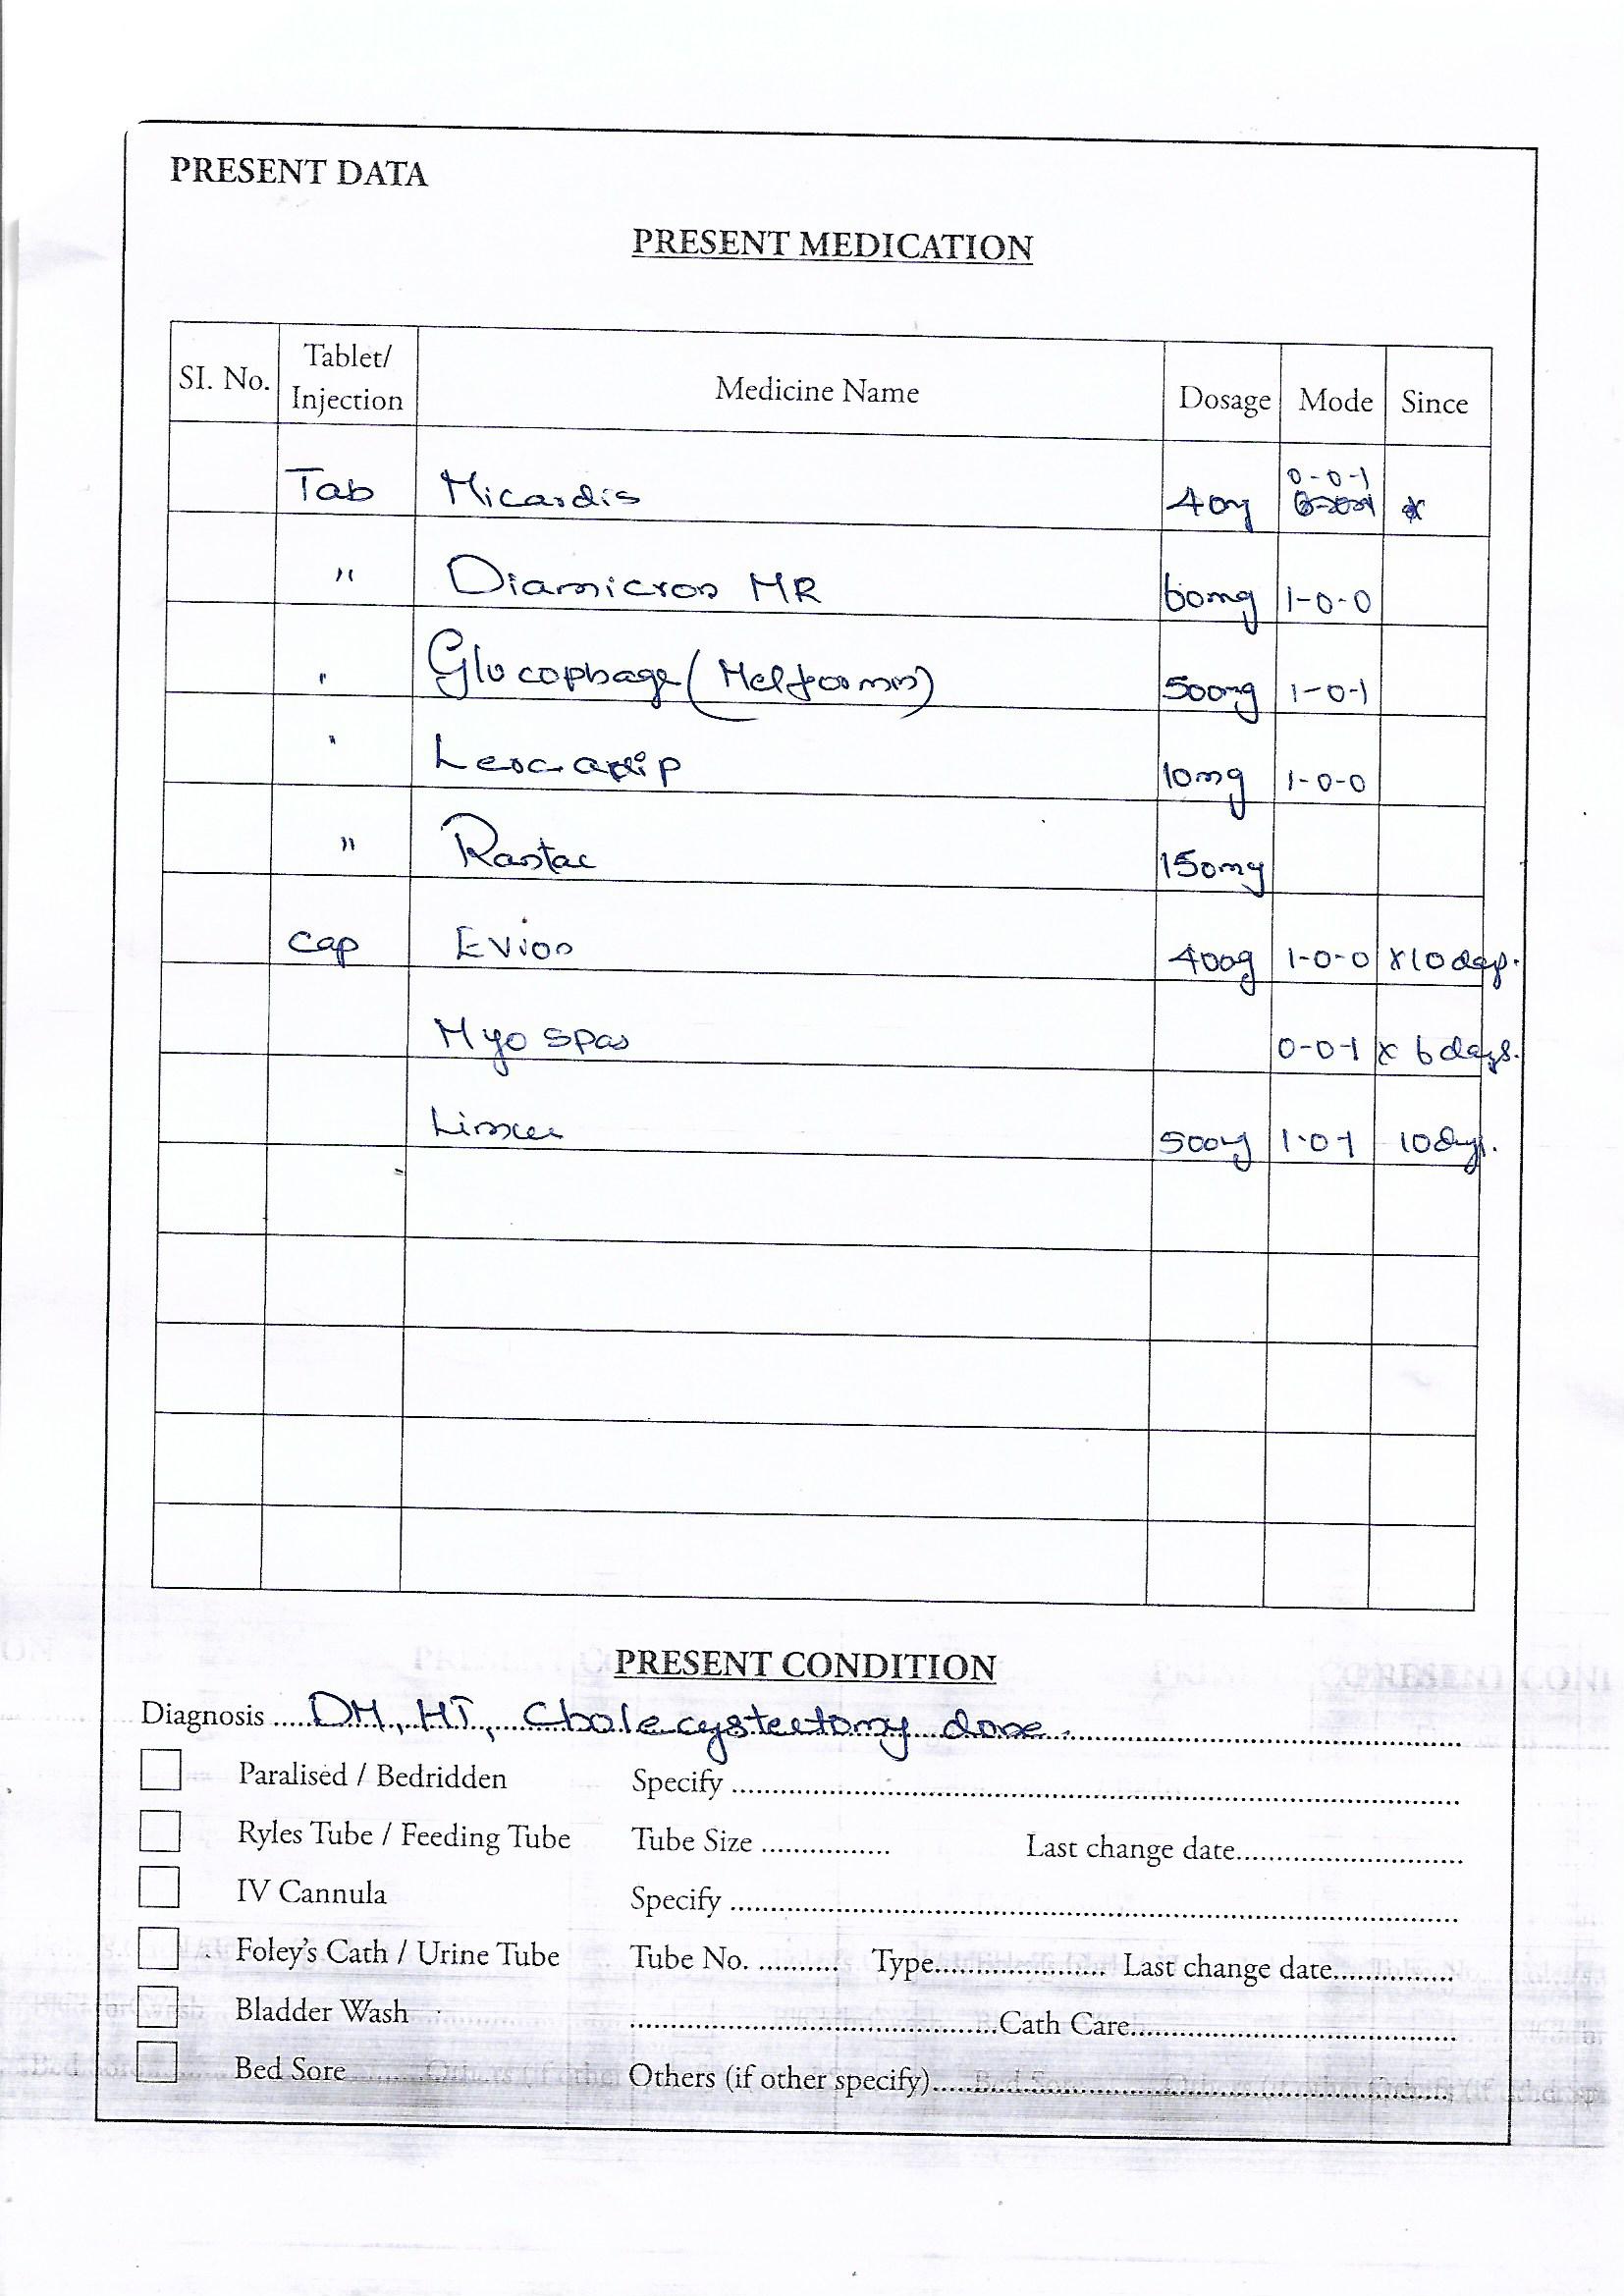 PRESENT DATA
PRESENT MEDICATION
SI. No. Tablet/ Injection Medicine Name Dosage Mode Since
Tab Micardis 40mg 0-0-1
" Diamicron MR 60mg 1-0-0
" Glucophage (Metformin) 500mg 1-0-1
" 10mg 1-0-0
" Rantac 150mg
Cap Evion 400g 1-0-0 x 10 days.
Myo spas 0-0-1 x 6 days.
Limcee 500mg 1-0-1 10 days.
PRESENT CONDITION
Diagnosis DM, HT, Cholecystectomy done.
Paralised / Bedridden Specify
Ryles Tube / Feeding Tube Tube Size Last change date
IV Cannula Specify
Foley's Cath / Urine Tube Tube No. Type Last change date
Bladder Wash Cath Care
Bed Sore Others (if other specify)